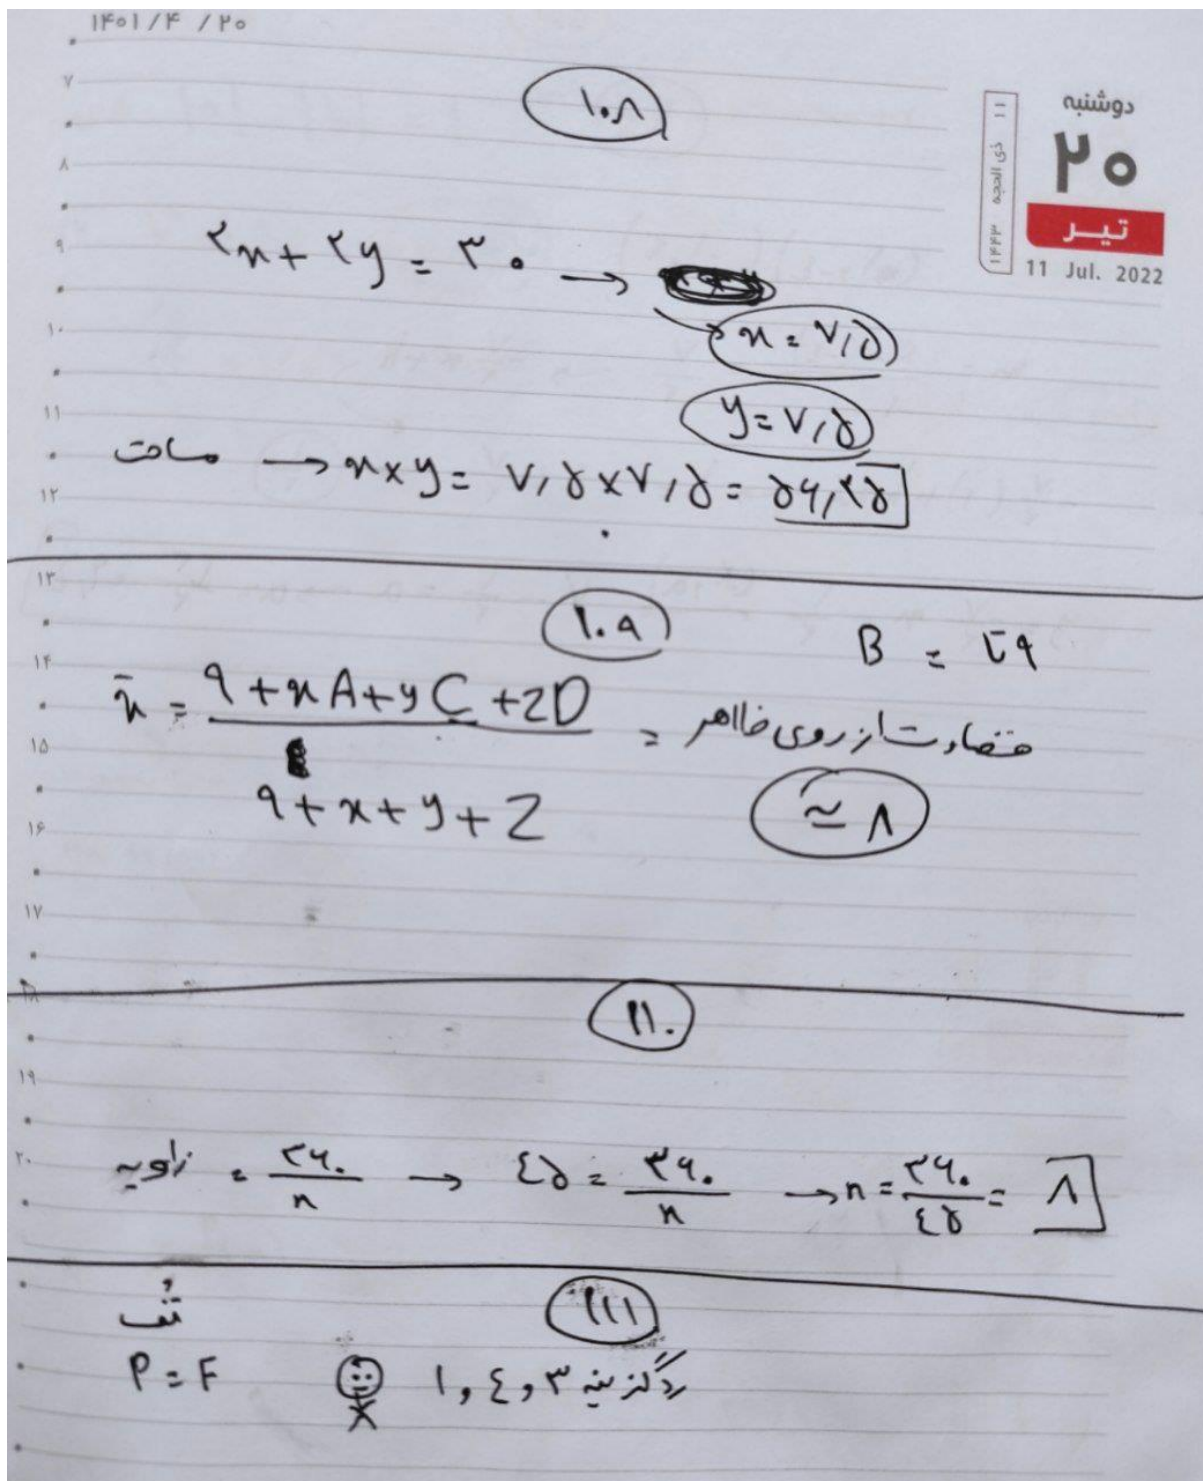 ۱۴۰۱/۴ /۲۰
دوشنبه
۲۰
تیر
11 Jul. 2022
۱۱ ذی الحجه ۱۴۴۳
۷
۸
۹
۱۰
۱۱
۱۲
۱۳
۱۴
۱۵
۱۶
۱۷
۱۸
۱۹
۲۰
۱۰۸
۲x + ۲y = ۳۰ →
x = ۷,۵
y = ۷,۵
مساحت → x × y = ۷,۵ × ۷,۵ = ۵۶,۲۵
۱۰۹
B = ۹ تا
x̄ = (۹ + xA + yC + zD) / (۹ + x + y + z) = قضاوت از روی ظاهر
≃ ۸
۱۱۰
زاویه = ۳۶۰/n → ۴۵ = ۳۶۰/n → n = ۳۶۰/۴۵ = ۸
۱۱۱
تُف
P = F ردگزینه ۳ و ۴ و ۱